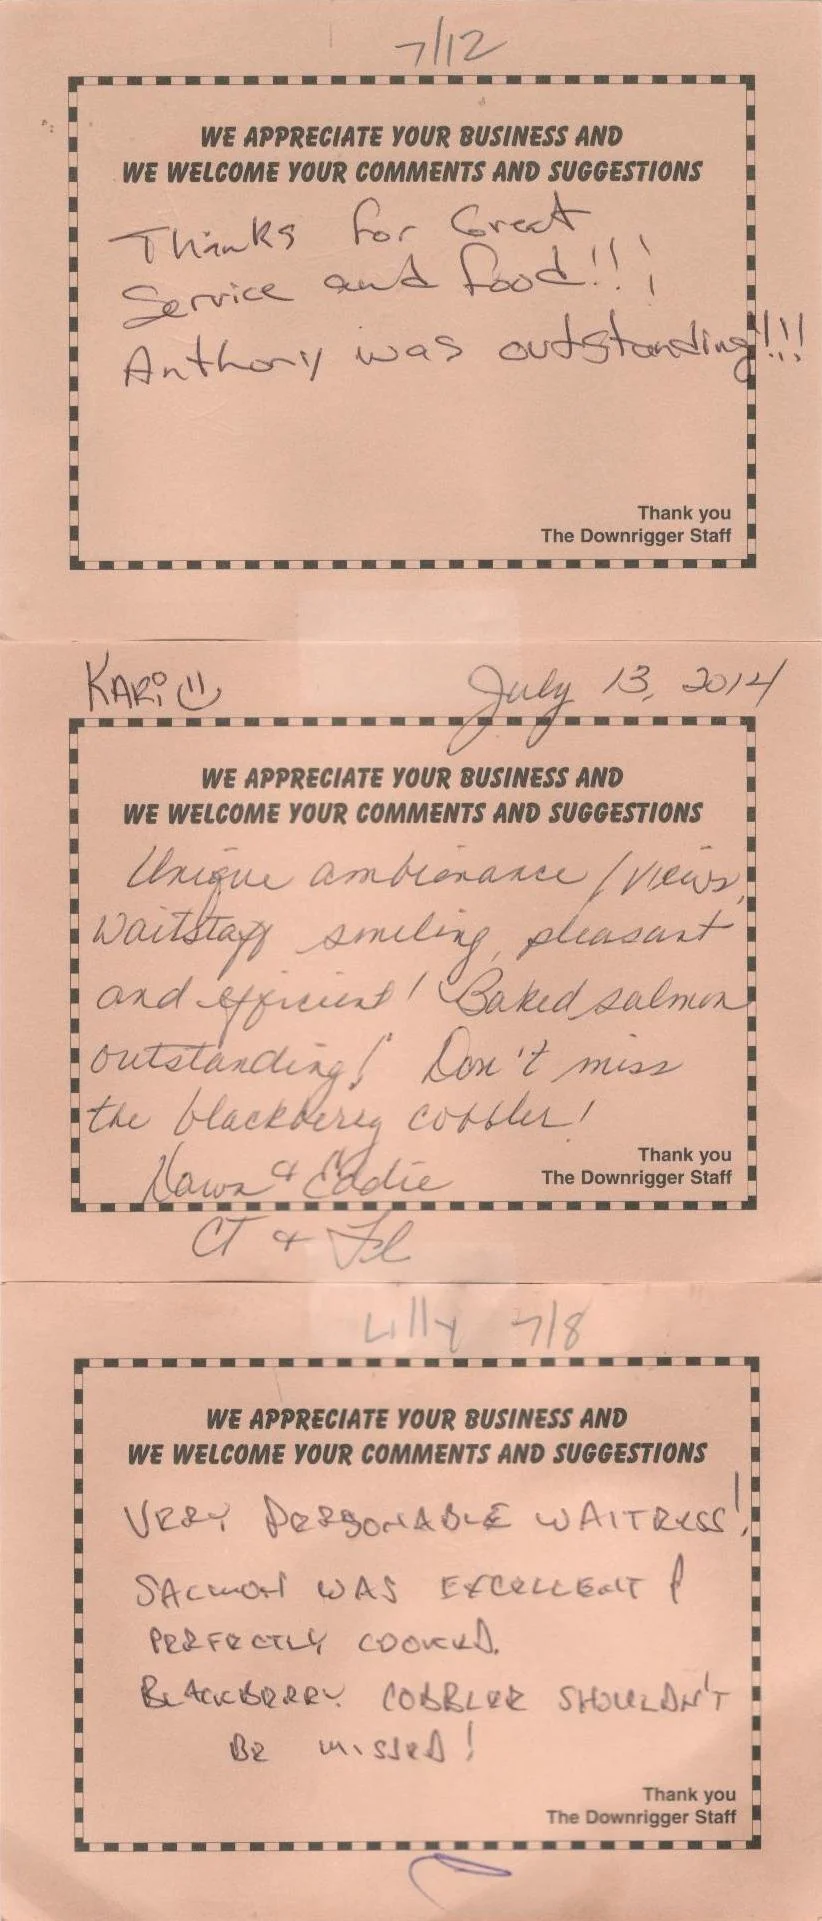 7/12
WE APPRECIATE YOUR BUSINESS AND
WE WELCOME YOUR COMMENTS AND SUGGESTIONS
Thanks for Great
Service and food!!!
Anthony was outstanding!!!
Thank you
The Downrigger Staff
Kari July 13, 2014
WE APPRECIATE YOUR BUSINESS AND
WE WELCOME YOUR COMMENTS AND SUGGESTIONS
Unique ambienance / views,
Waitstaff smiling, pleasant
and efficient! Baked salmon
outstanding! Don't miss
the blackberry cobbler!
Thank you
Dawn & Eddie
The Downrigger Staff
CT & Fl
Lilly 7/8
WE APPRECIATE YOUR BUSINESS AND
WE WELCOME YOUR COMMENTS AND SUGGESTIONS
VERY PERSONABLE WAITRESS!
SALMON WAS EXCELLENT &
PERFECTLY COOKED.
BLACKBERRY COBBLER SHOULDN'T
BE MISSED!
Thank you
The Downrigger Staff